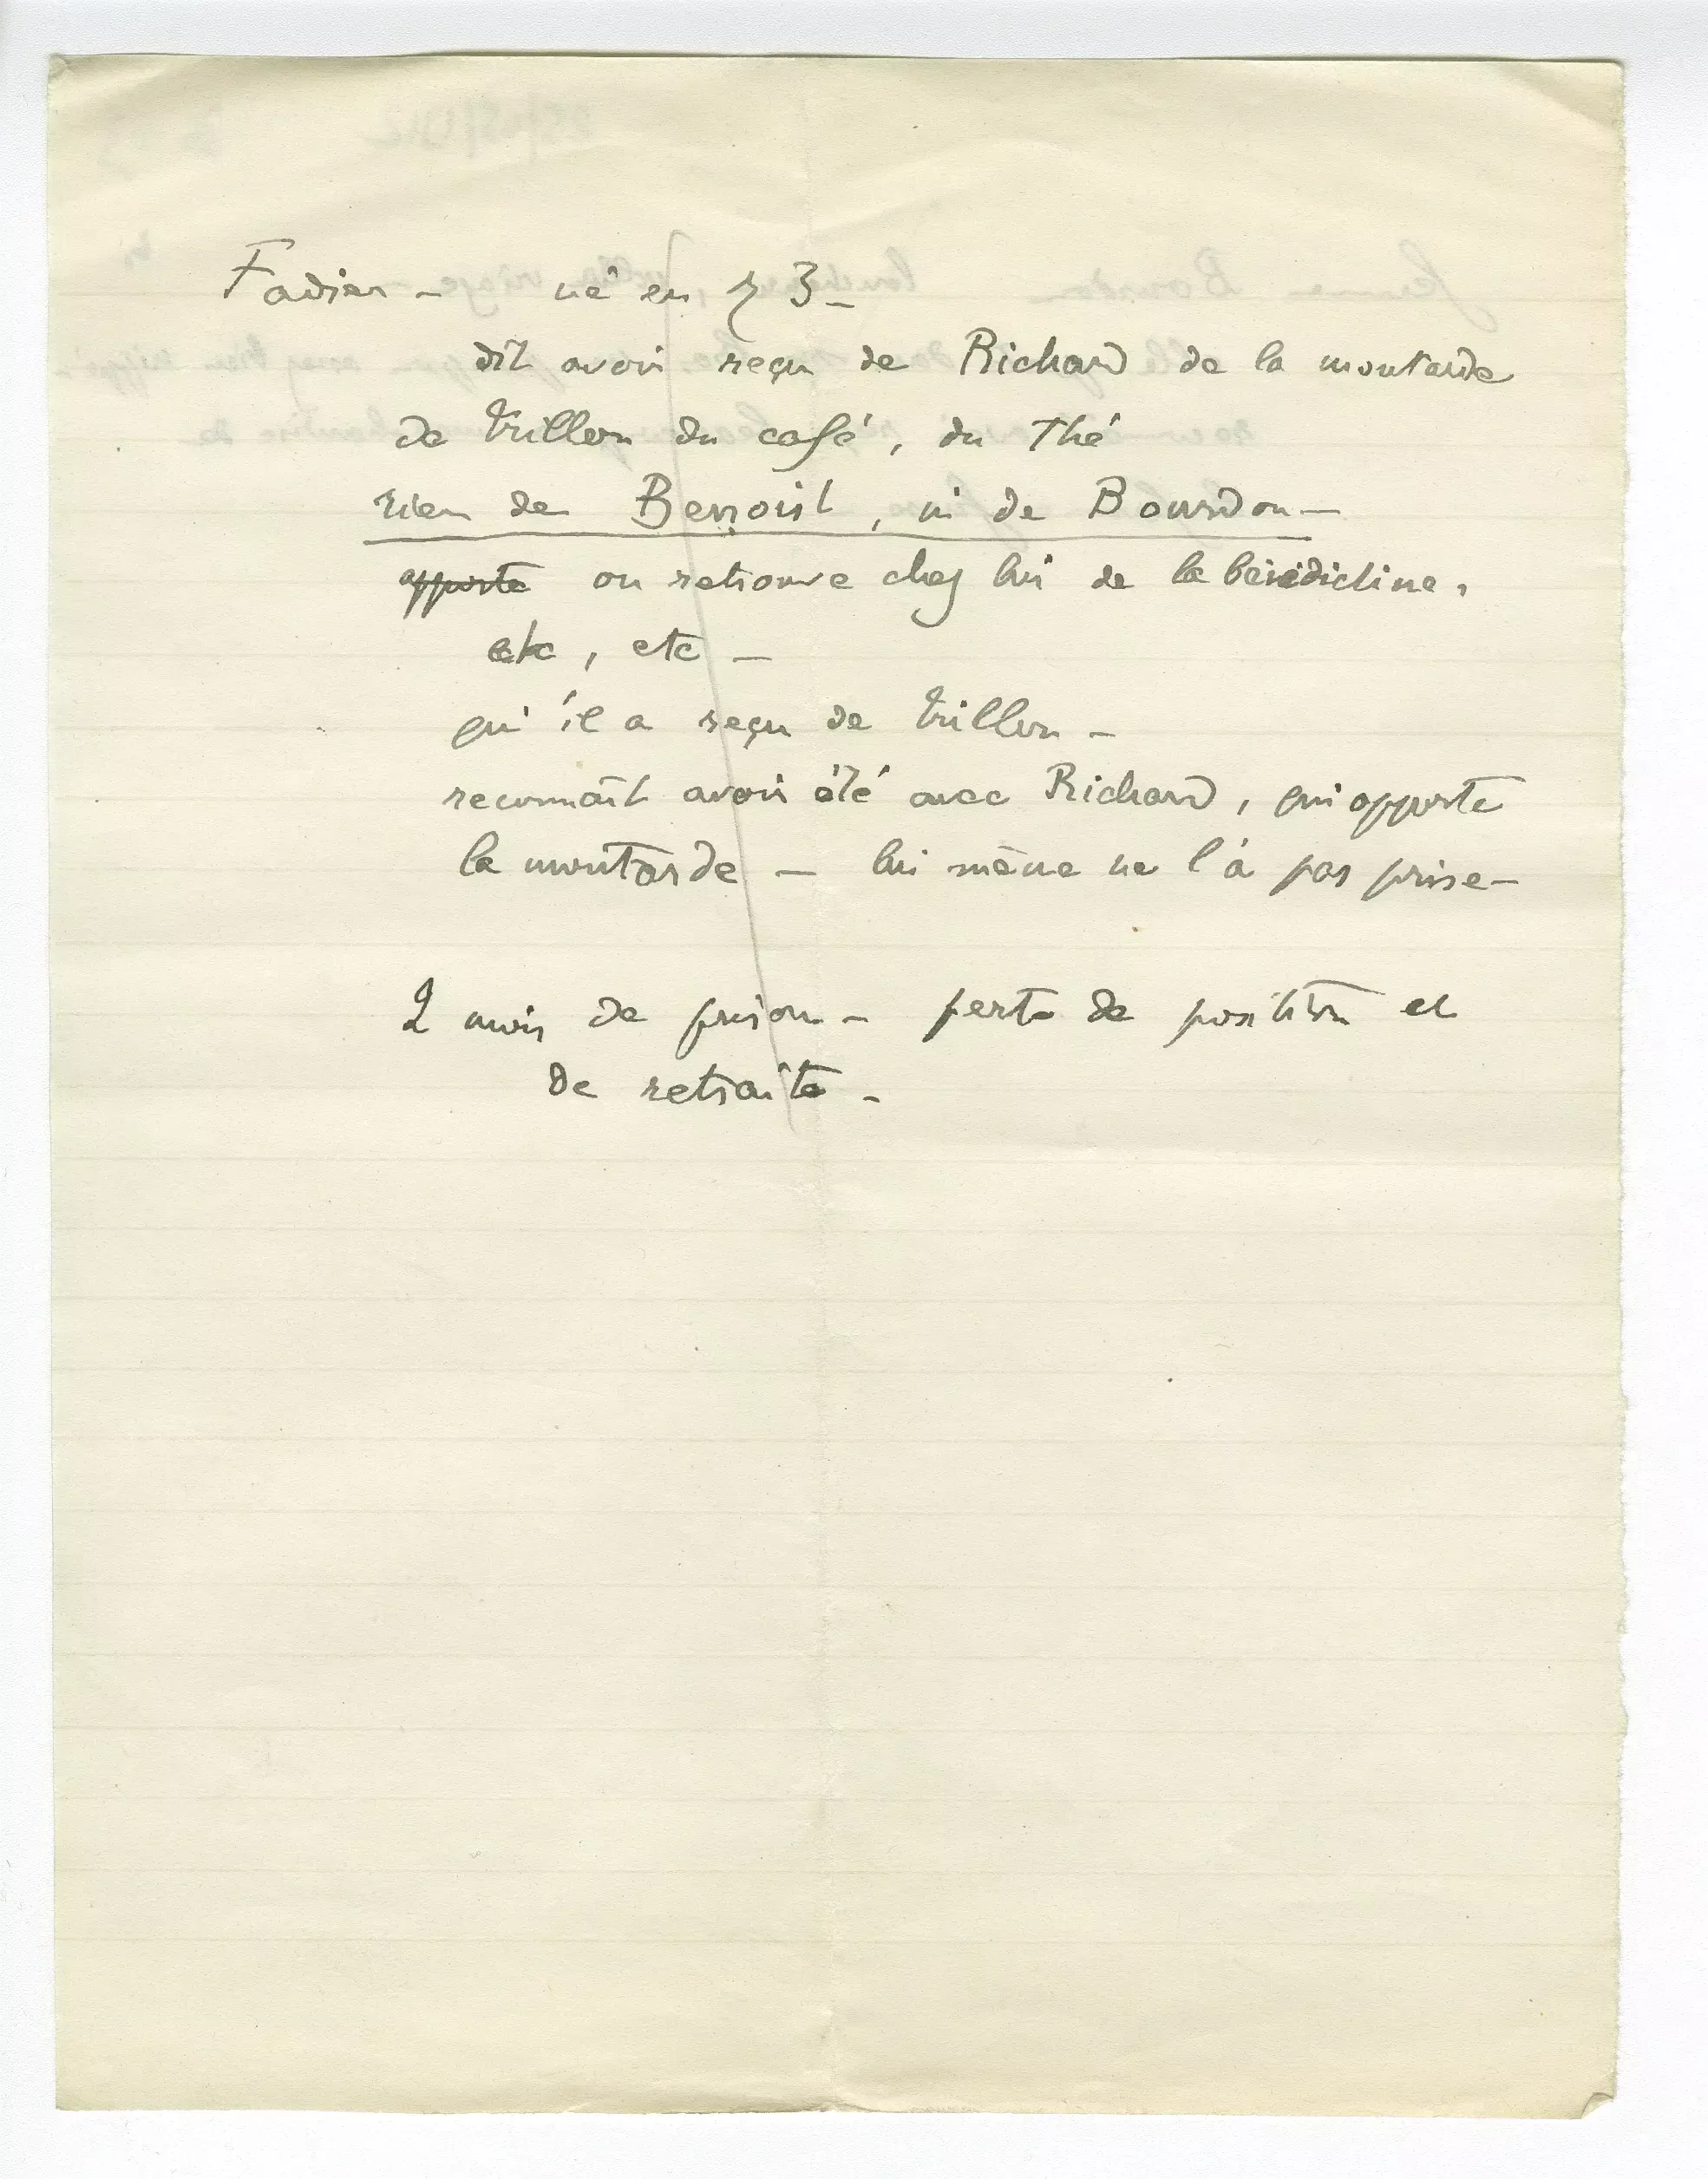 Fadier – né en 73 –
dit avoir reçu de Richard de la moutarde
de Trillon du café, du Thé
rien de Benoist, ni de Bourdon –
apporte on retrouve chez lui de la bénédictine,
etc, etc –
qu'il a reçu de Trillon –
reconnaît avoir été avec Richard, qui apporte
la moutarde – lui même ne l'a pas prise –
2 mois de prison – perte de position et
de retraite –